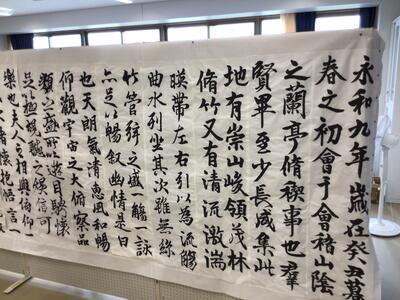 永和九年歳在癸丑暮
春之初會于會稽山陰
之蘭亭脩禊事也羣
賢畢至少長咸集此
地有崇山峻領茂林
脩竹又有清流激湍
暎帶左右引以為流觴
曲水列坐其次雖無絲
竹管弦之盛一觴一詠
亦足以暢叙幽情是日
也天朗氣清恵風和暢
仰觀宇宙之大俯察品
類之盛所以遊目騁懷
足以極視聽之娯信可
樂也夫人之相與俯仰
諸懷抱悟言一